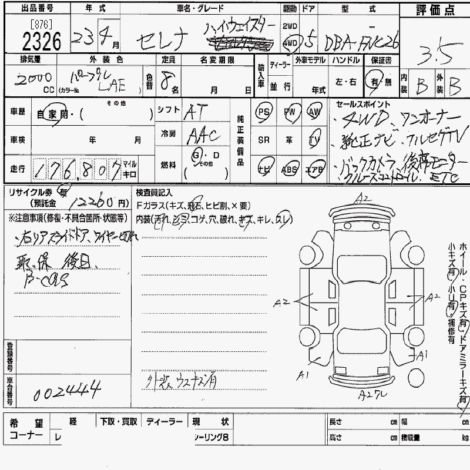 出品番号 年式 車名・グレード 駆動 ドア 型式 評価点
[876] 2326 23年4月 セレナ ハイウェイスター 2WD 4WD 5 DBA-FNC26 3.5
排気量 外装色 定員 名変期限 輸入車 ディーラー 外車モデル ハンドル 保証書
2000 CC パープル (カラーNo. LAE) 色替 8名 月 日 並行 年 左・右 有・無 内装 B 外装 B
車歴 自家用・その他 シフト AT 純正装備 PS PW AW セールスポイント
4WD ワンオーナー
車検 年 月 冷房 AAC SR 革 TV 純正ナビ フルセグTV
バックカメラ 後席モニター
走行 176,807 マイル キロ 燃料 G・D その他 ナビ ABS エアB クルーズコントロール ETC
リサイクル券 (預託金 12260円) 検査員記入
※注意事項(修復・不具合箇所・状態等) Fガラス(キズ、飛石、ヒビ割、×要)
右リアスライドドア、ワイヤー切れ 内装(汚れ、コゲ、穴、破れ、キズ、キレ、スレ)
取、保 後日
A2
A2 A2
A1 A1
外装ウスキズ有
A2
ホイール・CPキズ有・ドアミラーキズ有
小キズ有・小U有・補修有
登録番号
車台番号 002444
希望コーナー 軽 下取・買取 ディーラー 現状 長さ cm 幅 cm
レ ーリングB 高さ cm 積載量 kg